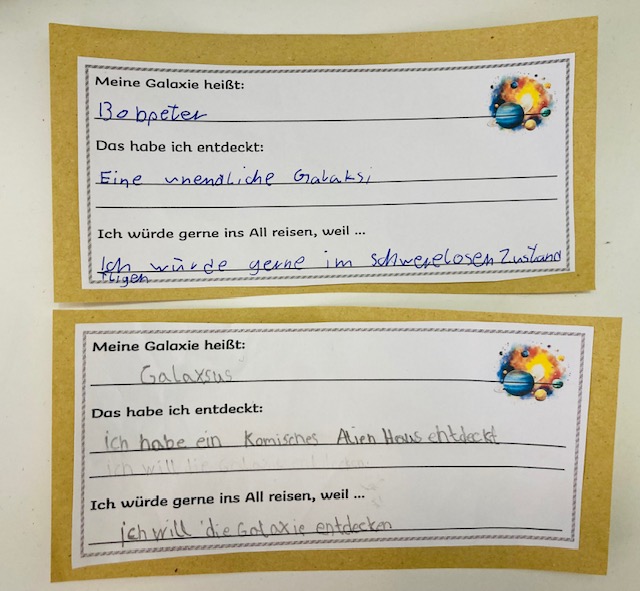 Meine Galaxie heißt:
Bobpeter
Das habe ich entdeckt:
Eine unendliche Galaksi
Ich würde gerne ins All reisen, weil ...
Ich würde gerne im schwerelosen Zustand
fligen
Meine Galaxie heißt:
Galaxsus
Das habe ich entdeckt:
ich habe ein Komisches Alien Haus entdeckt
ich will die
Ich würde gerne ins All reisen, weil ...
ich will die Galaxie entdecken